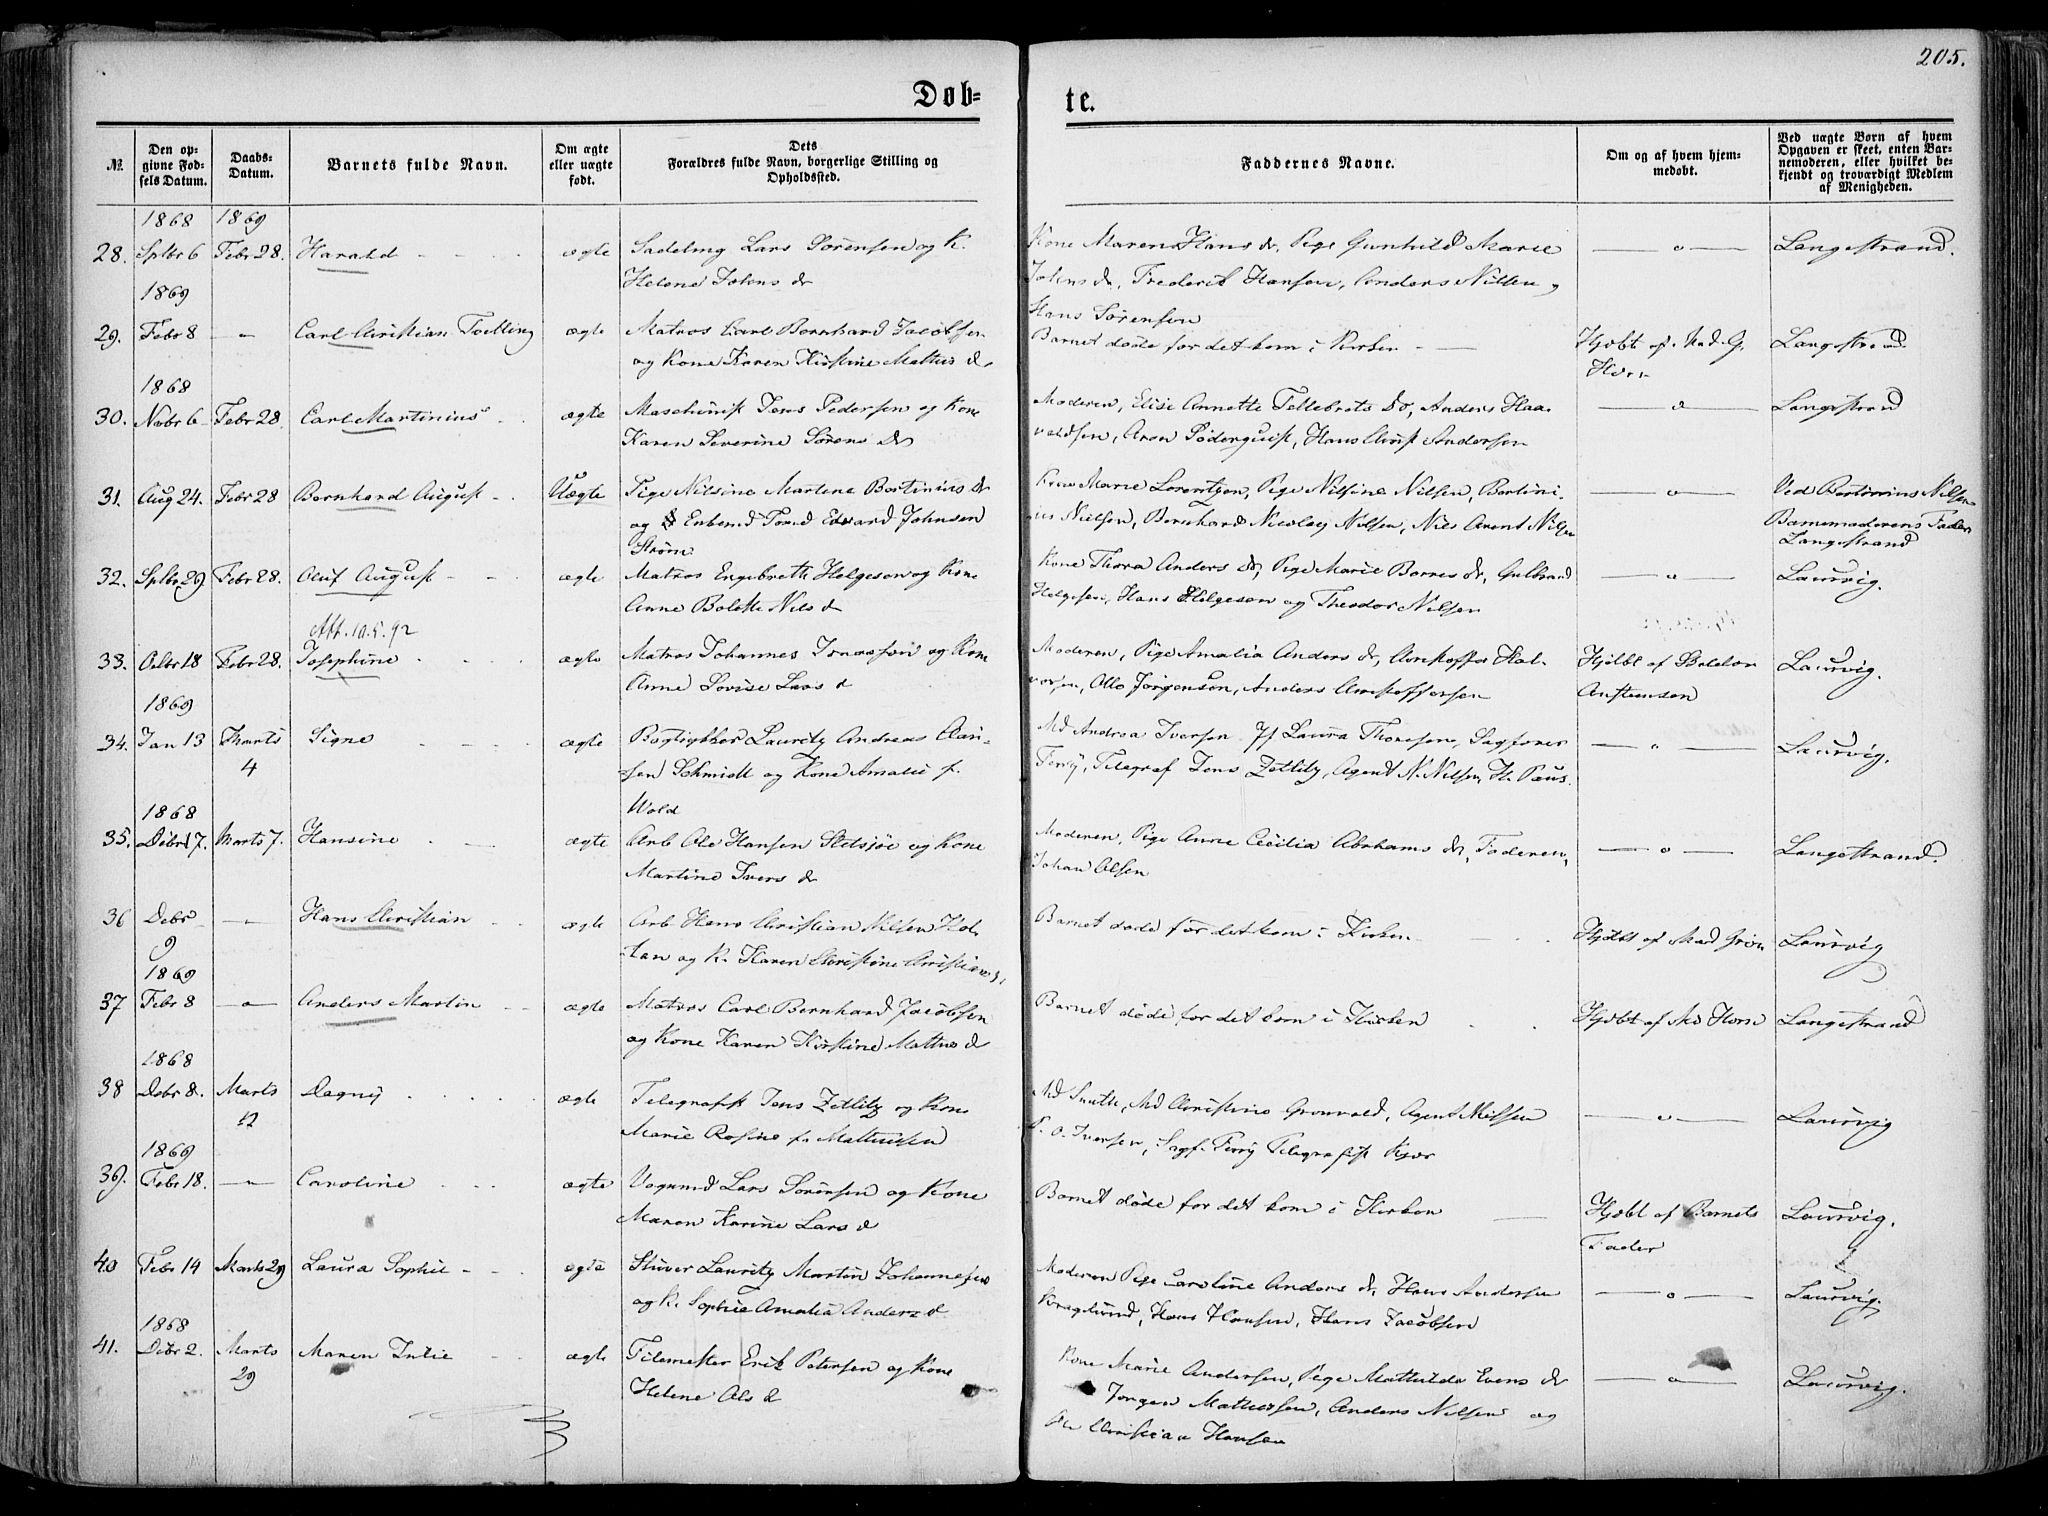 205.
Døb=
te.
№
Den op-
givne Fød-
sels Datum.
Daabs-
Datum.
Barnets fulde Navn.
Om ægte
eller uægte
født.
Dets
Forældres fulde Navn, borgerlige Stilling og
Opholdssted.
Faddernes Navne.
Om og af hvem hjem-
medøbt.
Ved uægte Børn af hvem
Opgaven er skeet, enten Bar-
nemoderen, eller hvilket be-
kjendt og troværdigt Medlem
af Menigheden.
1868 1869
28. Sptbr 6 Febr 28. Harald ægte Sadelmg Lars Sørensen og K.
Helene Johns d
Kone Maren Hans dr, Pige Gunhild Marie
Johns dr, Frederik Hansen, Anders Nilsen og
Hans Sørensen
Langestrand.
1869
29. Febr 8 Carl Christian ægte Matros Carl Bernhard Jacobsen
og Kone Karen Kirstine Mathis d.
Barnet døde før det kom i Kirken
Hjdbt af Mad G.
Horn
Langestrand
1868
30. Novbr 6 Febr 28. Carl Martinius ægte Maschinist Jens Pedersen og Kone
Karen Severine Sørens dr
Moderen, Elise Annette Tellebrots Dr, Anders Haa-
valdsen, Aron Söderquist, Hans Christ Andersen
Langestrand
31. Aug 24. Febr 28 Bernhard August Uægte Pige Nilsine Martene Bertinius dr
og Enbemd Tored Edvard Johnsen
Strøm
Kone Marie Lorentzen, Pige Nilsine Nilsen, Bertini-
us Nielsen, Bernhard Nicolay Nilsen, Nils Arent Nilsen
Ved Bertinius Nilsen
Barnemoderens Fader
Langestrand
32. Sptbr 29 Febr 28. Oluf August ægte Matros Engebreth Helgesen og Kone
Anne Bolette Nils d
Kone Thora Anders dr, Pige Marie Bornes dr, Gulbrand
Helgesen, Hans Helgesen og Theodor Nilsen
Laurvig.
Att. 10.5.92
33. Octbr 18 Febr 28. Josephine ægte Matros Johannes Isaacsen og Kone
Anne Lovise Lars d
Moderen, Pige Amalia Anders dr, Christoffer Hal-
vorsen, Otto Jörgensen, Anders Christoffersen
Hjdbt af
Laurvig.
1869
34. Jan 13 Marts
4
Signe ægte Bogtrykker Lauritz Andreas Clau-
sen Schmidt og Kone Amalie f.
Wold
Md Andrea Iversen Jf Laura Thoresen, Sagfører
Ferry, Telegraf Jens Zetlitz, Agent N. Nilsen, H. Paus.
Laurvig.
1868
35. Debr 17. Marts 7. Hansine ægte Arb Ole Hansen Sletsjøe og Kone
Martine Ivers d
Moderen, Pige Anne Cecilia Abrahams dr, Faderen,
Johan Olsen
Langestrand.
36 Debr
9
Hans Christian ægte Arb Hans Christian Nilsen Hol-
tan og K. Karen Christine Christians d.
Barnet døde før det kom i Kirken
Hjdbt af Mad Grön
Laurvig
1869
37 Febr 8 Anders Martin ægte Matros Carl Bernhard Jacobsen
og Kone Karen Kirstine Mathis d
Barnet døde før det kom i Kirken
Hjdbt af Md Horn
Langestrand
1868
38 Debr 8. Marts
12
Dagny ægte Telegrafist Jens Zetlitz og Kone
Marie Rosine f. Mathisen
Md Christine Gronvold, Agent Nilsen
P. O. Iversen, Sagf. Ferry Telegrafist Kjær
Laurvig
1869
39. Febr 18. Caroline ægte Vognmd Lars Sörensen og Kone
Maren Karine Lars d
Barnet døde før det kom i Kirken
Hjdbt af Barnets
Fader
Laurvig.
40 Febr 14 Marts 29 Laura Sophie ægte Stuver Lauritz Martin Johannesen
og K. Sophie Amalia Anders d
Moderen Pige Caroline Anders dr, Hans Andersen
Kragelund, Hans Hansen, Hans Jacobsen
Laurvig.
1868
41. Debr 2. Marts
29
Maren Julie ægte Filemester Erik Petersen og Kone
Helene Ols d
Kone Marie Andersen, Pige Mathilde Evens dr
Jørgen Mathisen, Anders Nilsen og
Ole Christian Hansen
Laurvig.